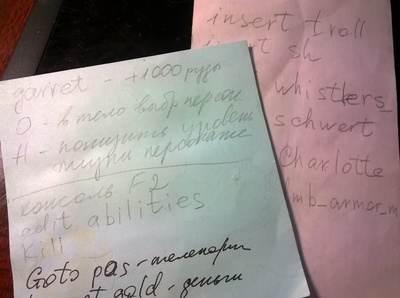 garret - +1000 руды
O - в тело выбр персон
H - повысить уровень
жизни персонажа
консоль F2
edit abilities
Kill
Goto pos - телепорт
gold - деньги
insert troll
sh
whistlers_
schwert
Charlotte